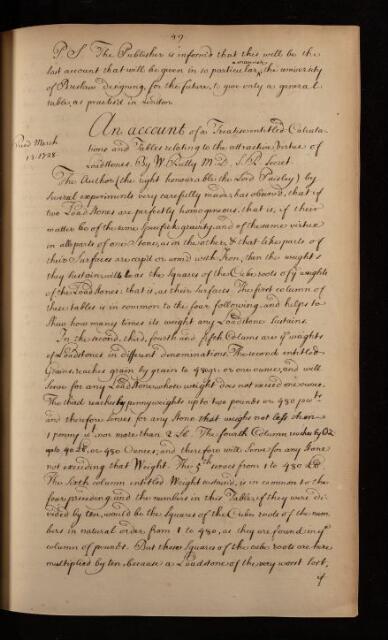 49
P S The Publisher is inform'd that this will be the
last account that will be given in so particular a manner, the university
of Breslaw designing, for the future, to give only a general
table, as practis'd in London.
Read March
13. 1728
An account of a Treatise entitled Calcula-
tions and Tables relating to the attractive Virtue of
Loadstones. By W. Rutty M. D. S. R. Secret.
The Author (the right honourable the Lord Paisley) by
several experiments very carefully made, has observed, that if
two Loadstones are perfectly homogeneous, that is, if their
matter be of the same specifick gravity, and of the same virtue
in all parts of one Stone, as in the other, & that like parts of
their Surfaces are cap'd or arm'd with Iron, then the weights
they sustain will be as the Squares of the Cube roots of ye weights
of the Loadstones: that is, as their Surfaces. The first column of
these tables is in common to the four following, and helps to
shew how many times its weight any Loadstone sustains.
In the second, third, fourth and fifth Column are ye weights
of Loadstones in different denominations. The second entitled
Grains, reaches grain by grain to 480 gr: or one ounce, and will
serve for any Loadstone whose weight does not exceed one ounce.
The third reaches by pennyweights up to two pounds or 480 pwts
and therefore serves for any Stone that weighs not less than
1 penny wt. nor more than 2 lb. The fourth Column reaches by Oz
up to 40 lb. or 480 Ounces; and therefore will serve for any Stone
not exceeding that Weight. The 5th serves from 1 to 480 Lb
The Sixth column entitled Weight sustain'd, is in common to the
four preceding and the numbers in this Table, if they were di-
vided by ten, would be the Squares of the Cube roots of the num-
bers in natural order from 1 to 480, as they are found in ye
column of pounds. But these Squares of the cube roots are here
multiplied by ten, because a Loadstone of the very worst sort,
if